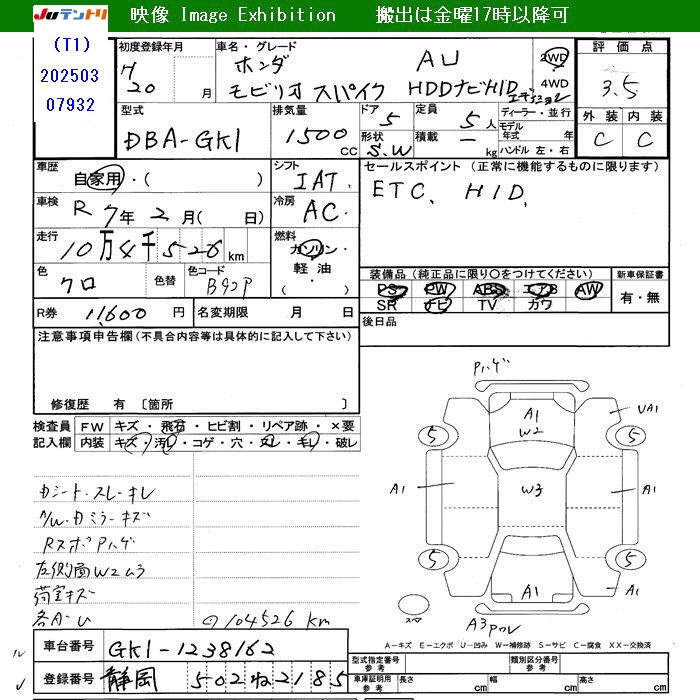 Juテントリ 映像 Image Exhibition 搬出は金曜17時以降可
(T1)
202503
07932
初度登録年月
H 20 月
車名・グレード
ホンダ AU
モビリオ スパイク HDDナビHID エディション
2WD
4WD
評価点
3.5
外装 内装
C C
型式
DBA-GK1
排気量
1500 CC
ドア
5
形状
S.W
定員
5 人
積載
— kg
ディーラー・並行
モデル年式 年
ハンドル 左・右
車歴
自家用・( )
シフト
IAT
セールスポイント (正常に機能するものに限ります)
ETC、HID、
車検
R 7年 2月( 日)
冷房
AC
走行
10万4千526 km
燃料
ガソリン・
軽油・
( )
色
クロ
色替
色コード
B92P
装備品 (純正品に限り〇をつけてください)
PS PW ABS エアB AW
SR ナビ TV カワ
新車保証書
有・無
R券 11,600 円
名変期限 月 日
後日品
注意事項申告欄(不具合内容等は具体的に記入して下さい)
修復歴 有 〔箇所 〕
検査員記入欄
FW キズ・飛石・ヒビ割・リペア跡・×要
内装 キズ・汚れ・コゲ・穴・スレ・キレ・破レ
Dシート・スレ・キレ
A/W・Dミラーキズ
RスポPハゲ
左側面W2ムラ
荷室キズ
各A・U
◎104526 km
Pハゲ
A1
W2
UA1
5
5
A1
W3
A1
5
5
A1
A1
スマ
A3ワレ
A-キズ E-エクボ U-凹み W-補修跡 S-サビ C-腐食 XX-交換済
車台番号
GK1-1238162
登録番号
静岡 502 ね 2185
型式指定番号 参考
類別区分番号 参考
車庫証明用 参考
長さ cm
幅 cm
高さ cm